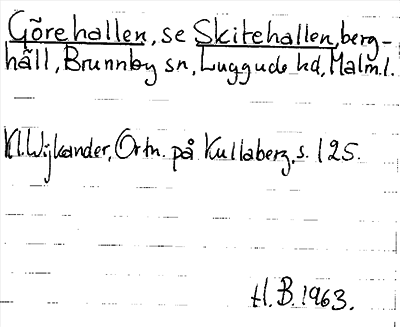 Görehallen, se Skitehallen, berg-
häll, Brunnby sn, Luggude hd, Malm.l.
Kl. Wijkander, Ortn. på Kullaberg, s. 125.
H.B. 1963.